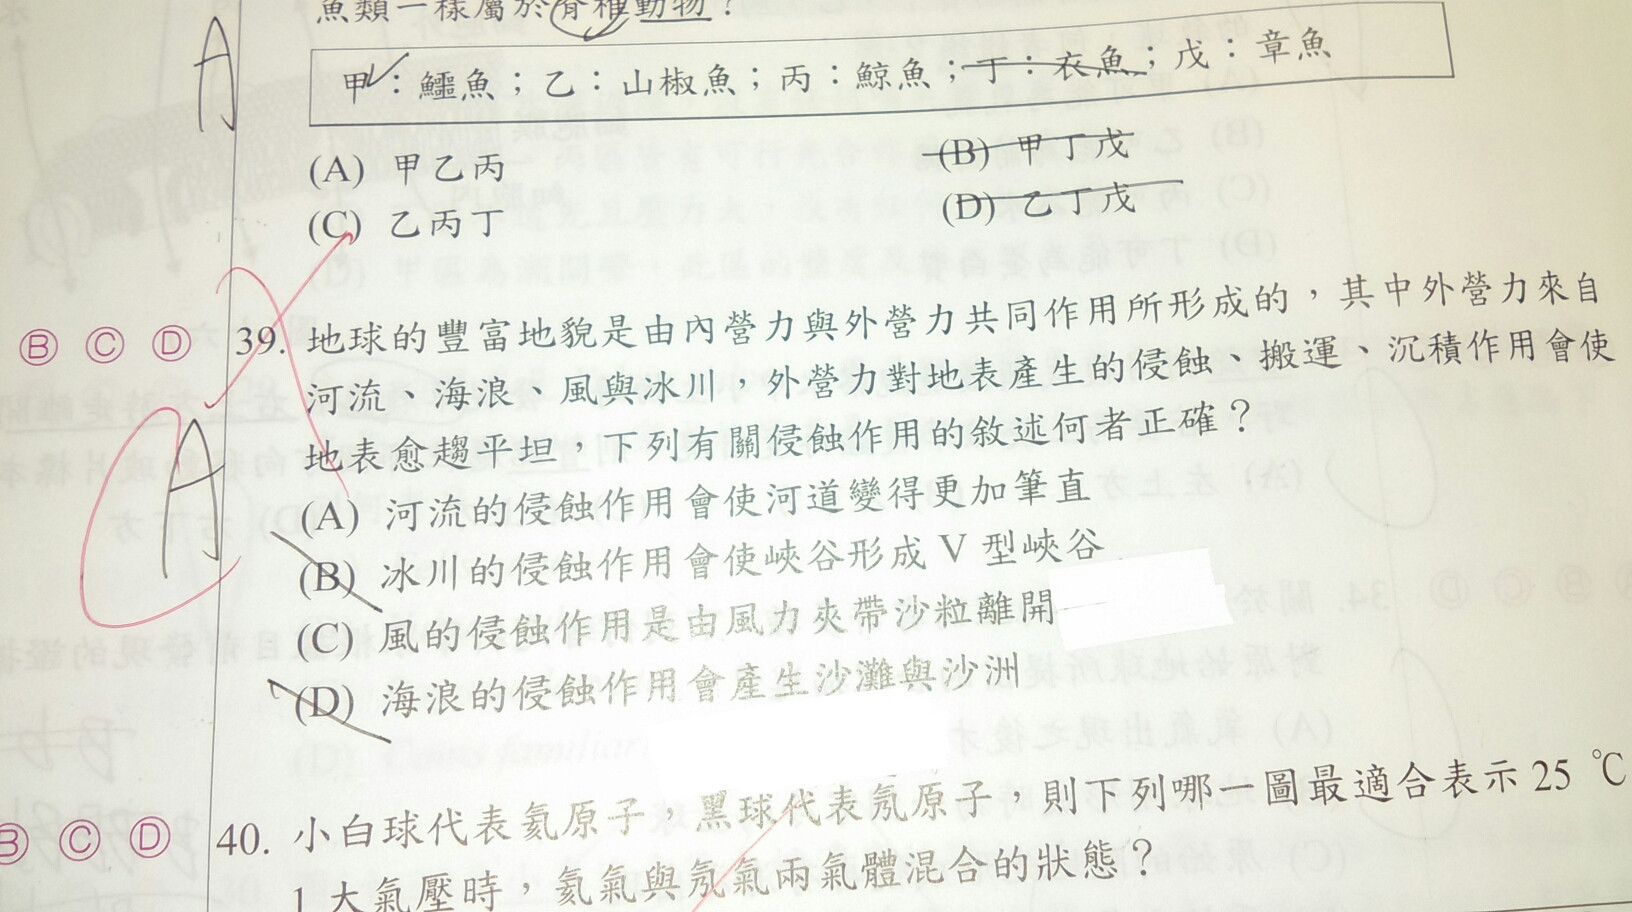 魚類一樣屬於脊椎動物？
A
甲：鱷魚；乙：山椒魚；丙：鯨魚；丁：衣魚；戊：章魚
(A) 甲乙丙
(B) 甲丁戊
(C) 乙丙丁
(D) 乙丁戊
Ⓑ Ⓒ Ⓓ 39. 地球的豐富地貌是由內營力與外營力共同作用所形成的，其中外營力來自
河流、海浪、風與冰川，外營力對地表產生的侵蝕、搬運、沉積作用會使
地表愈趨平坦，下列有關侵蝕作用的敘述何者正確？
A
(A) 河流的侵蝕作用會使河道變得更加筆直
(B) 冰川的侵蝕作用會使峽谷形成 V 型峽谷
(C) 風的侵蝕作用是由風力夾帶沙粒離開
(D) 海浪的侵蝕作用會產生沙灘與沙洲
Ⓑ Ⓒ Ⓓ 40. 小白球代表氦原子，黑球代表氖原子，則下列哪一圖最適合表示 25 ℃
1 大氣壓時，氦氣與氖氣兩氣體混合的狀態？